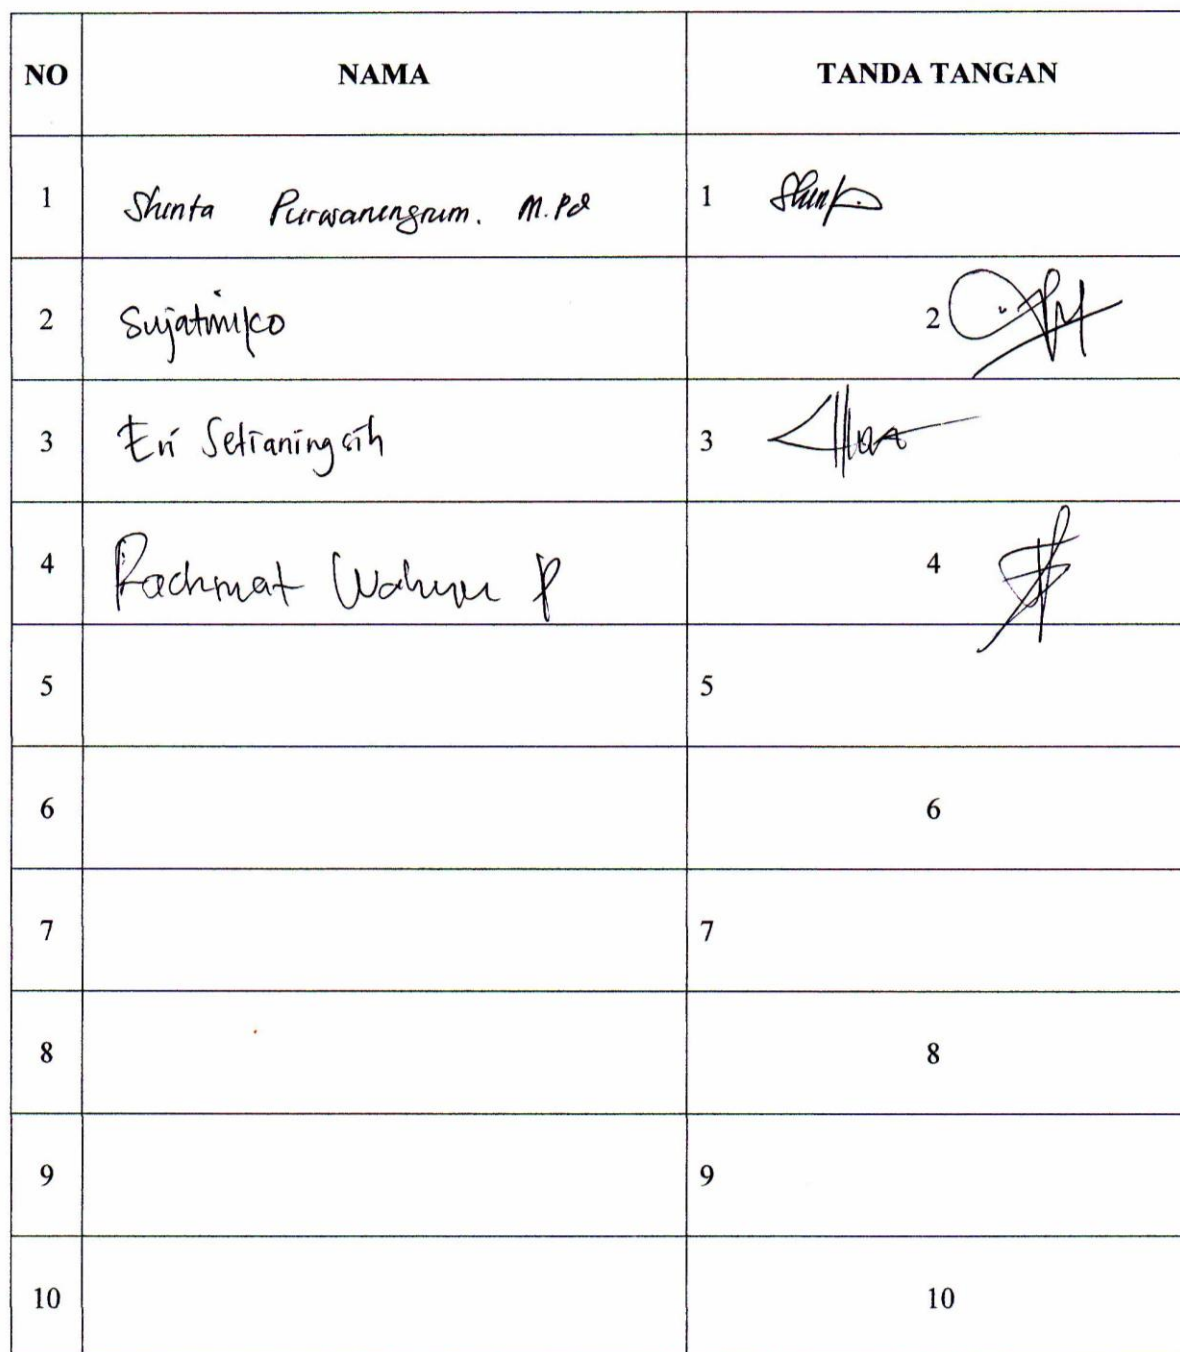 NO NAMA TANDA TANGAN
1 Shinta Purwaningrum. M.Pd 1
2 Sujatmiko 2
3 Eri Setianingsih 3
4 Rachmat Wahyu P 4
5 5
6 6
7 7
8 8
9 9
10 10